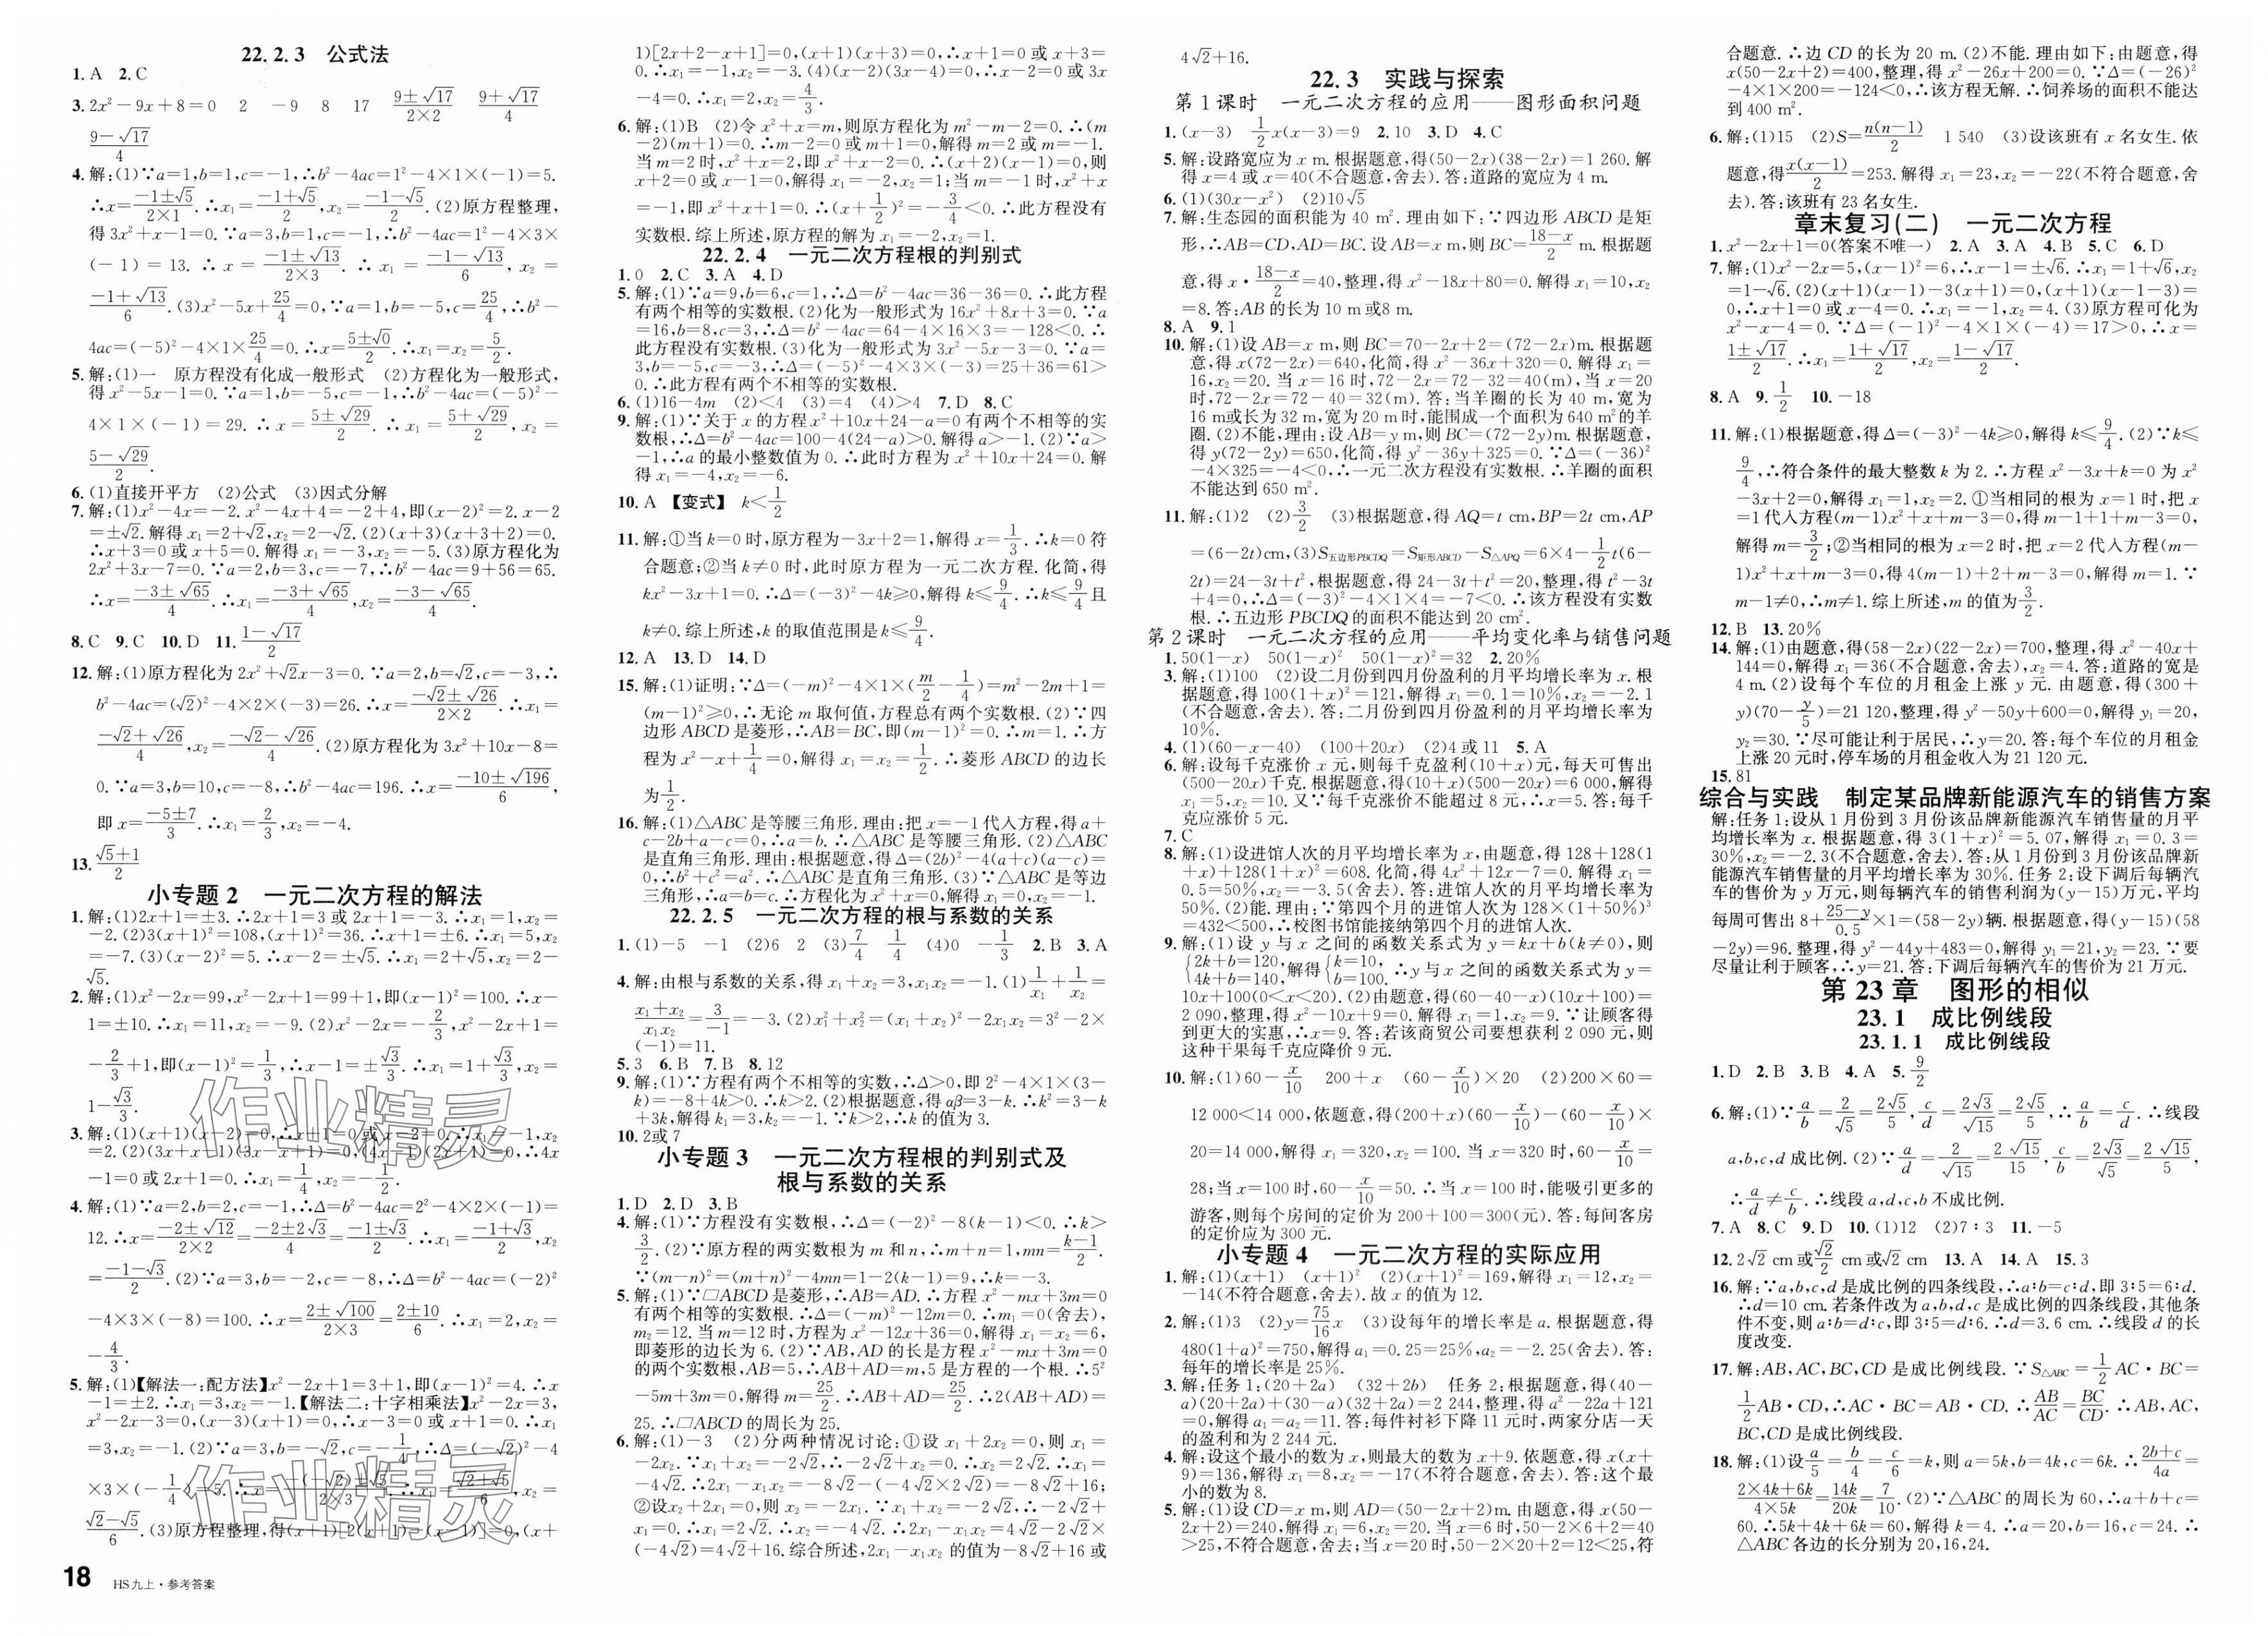 22.2.3 公式法
1. A 2. C
3. 2x²-9x+8=0 2 -9 8 17 (9±√17)/(2×2) (9+√17)/4
(9-√17)/4
4. 解:(1)∵a=1,b=1,c=-1,∴b²-4ac=1²-4×1×(-1)=5.
∴x=(-1±√5)/(2×1).∴x₁=(-1+√5)/2,x₂=(-1-√5)/2.(2)原方程整理,
得3x²+x-1=0.∵a=3,b=1,c=-1,∴b²-4ac=1²-4×3×
(-1)=13.∴x=(-1±√13)/(2×3).∴x₁=(-1-√13)/6,x₂=
(-1+√13)/6.(3)x²-5x+25/4=0,∵a=1,b=-5,c=25/4,∴b²-
4ac=(-5)²-4×1×25/4=0.∴x=(5±√0)/2.∴x₁=x₂=5/2.
5. 解:(1)一 原方程没有化成一般形式 (2)方程化为一般形式,
得x²-5x-1=0.∵a=1,b=-5,c=-1,∴b²-4ac=(-5)²-
4×1×(-1)=29.∴x=(5±√29)/2.∴x₁=(5+√29)/2,x₂=
(5-√29)/2.
6. (1)直接开平方 (2)公式 (3)因式分解
7. 解:(1)x²-4x=-2.x²-4x+4=-2+4,即(x-2)²=2.x-2
=±√2.解得x₁=2+√2,x₂=2-√2.(2)(x+3)(x+3+2)=0.
∴x+3=0或x+5=0.解得x₁=-3,x₂=-5.(3)原方程化为
2x²+3x-7=0.∵a=2,b=3,c=-7,∴b²-4ac=9+56=65.
∴x=(-3±√65)/4.∴x₁=(-3+√65)/4,x₂=(-3-√65)/4.
8. C 9. C 10. D 11. (1-√17)/2
12. 解:(1)原方程化为2x²+√2x-3=0.∵a=2,b=√2,c=-3,∴
b²-4ac=(√2)²-4×2×(-3)=26.∴x=(-√2±√26)/(2×2).∴x₁=
(-√2+√26)/4,x₂=(-√2-√26)/4.(2)原方程化为3x²+10x-8=
0.∵a=3,b=10,c=-8,∴b²-4ac=196.∴x=(-10±√196)/6,
即x=(-5±7)/3.∴x₁=2/3,x₂=-4.
13. (√5+1)/2
小专题2 一元二次方程的解法
1. 解:(1)2x+1=±3.∴2x+1=3或2x+1=-3.∴x₁=1,x₂=
-2.(2)3(x+1)²=108,(x+1)²=36.∴x+1=±6.∴x₁=5,x₂
=-7.(3)(x-2)²=5.∴x-2=±√5.∴x₁=2+√5,x₂=2-
√5.
2. 解:(1)x²-2x=99,x²-2x+1=99+1,即(x-1)²=100.∴x-
1=±10.∴x₁=11,x₂=-9.(2)x²-2x=-2/3,x²-2x+1=
-2/3+1,即(x-1)²=1/3.∴x-1=±√3/3.∴x₁=1+√3/3,x₂=
1-√3/3.
3. 解:(1)(x+1)(x-2)=0,∴x+1=0或x-2=0.∴x₁=-1,x₂
=2.(2)(3x+x-1)(3x-x+1)=0,(4x-1)(2x+1)=0,∴4x
-1=0或2x+1=0.∴x₁=1/4,x₂=-1/2.
4. 解:(1)∵a=2,b=2,c=-1,∴Δ=b²-4ac=2²-4×2×(-1)=
12.∴x=(-2±√12)/(2×2)=(-2±2√3)/4=(-1±√3)/2.∴x₁=(-1+√3)/2,x₂
=(-1-√3)/2.(2)∵a=3,b=-2,c=-8,∴Δ=b²-4ac=(-2)²
-4×3×(-8)=100.∴x=(2±√100)/(2×3)=(2±10)/6.∴x₁=2,x₂=
-4/3.
5. 解:(1)【解法一:配方法】x²-2x+1=3+1,即(x-1)²=4.∴x
-1=±2.∴x₁=3,x₂=-1.【解法二:十字相乘法】x²-2x=3,
x²-2x-3=0,(x-3)(x+1)=0,∴x-3=0或x+1=0.∴x₁
=3,x₂=-1.(2)∵a=3,b=-√2,c=-1/4,∴Δ=(-√2)²-4
×3×(-1/4)=5.∴x=(-(-√2)±√5)/(2×3).∴x₁=(√2+√5)/6,x₂=
(√2-√5)/6.(3)原方程整理,得(x+1)[2(x+1)-(x-1)]=0,(x+
1)[2x+2-x+1]=0,(x+1)(x+3)=0,∴x+1=0或x+3=
0.∴x₁=-1,x₂=-3.(4)(x-2)(3x-4)=0,∴x-2=0或3x
-4=0.∴x₁=2,x₂=4/3.
6. 解:(1)B (2)令x²+x=m,则原方程化为m²-m-2=0.∴(m
-2)(m+1)=0.∴m-2=0或m+1=0,解得m=2或m=-1.
当m=2时,x²+x=2,即x²+x-2=0.∴(x+2)(x-1)=0,则
x+2=0或x-1=0,解得x₁=-2,x₂=1;当m=-1时,x²+x
=-1,即x²+x+1=0.∴(x+1/2)²=-3/4<0.∴此方程没有
实数根.综上所述,原方程的解为x₁=-2,x₂=1.
22.2.4 一元二次方程根的判别式
1. 0 2. C 3. A 4. D
5. 解:(1)∵a=9,b=6,c=1,∴Δ=b²-4ac=36-36=0.∴此方程
有两个相等的实数根.(2)化为一般形式为16x²+8x+3=0.∵a
=16,b=8,c=3,∴Δ=b²-4ac=64-4×16×3=-128<0.∴
此方程没有实数根.(3)化为一般形式为3x²-5x-3=0.∵a=
3,b=-5,c=-3,∴Δ=(-5)²-4×3×(-3)=25+36=61>
0.∴此方程有两个不相等的实数根.
6. (1)16-4m (2)<4 (3)=4 (4)>4 7. D 8. C
9. 解:(1)∵关于x的方程x²+10x+24-a=0有两个不相等的实
数根,∴Δ=b²-4ac=100-4(24-a)>0.解得a>-1.(2)∵a>
-1,∴a的最小整数值为0.∴此时方程为x²+10x+24=0.解
得x₁=-4,x₂=-6.
10. A 【变式】 k<1/2
11. 解:①当k=0时,原方程为-3x+2=1,解得x=1/3.∴k=0符
合题意;②当k≠0时,此时原方程为一元二次方程.化简,得
kx²-3x+1=0.∴Δ=(-3)²-4k≥0,解得k≤9/4.∴k≤9/4且
k≠0.综上所述,k的取值范围是k≤9/4.
12. A 13. D 14. D
15. 解:(1)证明:∵Δ=(-m)²-4×1×(m/2-1/4)=m²-2m+1=
(m-1)²≥0,∴无论m取何值,方程总有两个实数根.(2)∵四
边形ABCD是菱形,∴AB=BC,即(m-1)²=0.∴m=1.∴方
程为x²-x+1/4=0,解得x₁=x₂=1/2.∴菱形ABCD的边长
为1/2.
16. 解:(1)△ABC是等腰三角形.理由:把x=-1代入方程,得a+
c-2b+a-c=0,∴a=b.∴△ABC是等腰三角形.(2)△ABC
是直角三角形.理由:根据题意,得Δ=(2b)²-4(a+c)(a-c)=
0,∴b²+c²=a².∴△ABC是直角三角形.(3)∵△ABC是等边
三角形,∴a=b=c.∴方程化为x²+x=0,解得x₁=0,x₂=-1.
22.2.5 一元二次方程的根与系数的关系
1. (1)-5 -1 (2)6 2 (3)7/4 1/4 (4)0 -1/3 2. B 3. A
4. 解:由根与系数的关系,得x₁+x₂=3,x₁x₂=-1.(1)1/x₁+1/x₂=
(x₁+x₂)/(x₁x₂)=3/(-1)=-3.(2)x₁²+x₂²=(x₁+x₂)²-2x₁x₂=3²-2×
(-1)=11.
5. 3 6. B 7. B 8. 12
9. 解:(1)∵方程有两个不相等的实数,∴Δ>0,即2²-4×1×(3-
k)=-8+4k>0.∴k>2.(2)根据题意,得αβ=3-k.∴k²=3-k
+3k,解得k₁=3,k₂=-1.∵k>2,∴k的值为3.
10. 2或7
小专题3 一元二次方程根的判别式及
根与系数的关系
1. D 2. D 3. B
4. 解:(1)∵方程没有实数根,∴Δ=(-2)²-8(k-1)<0.∴k>
3/2.(2)∵原方程的两实数根为m和n,∴m+n=1,mn=(k-1)/2.
∵(m-n)²=(m+n)²-4mn=1-2(k-1)=9,∴k=-3.
5. 解:(1)∵□ABCD是菱形,∴AB=AD.∴方程x²-mx+3m=0
有两个相等的实数根.∴Δ=(-m)²-12m=0.∴m₁=0(舍去),
m₂=12.当m=12时,方程为x²-12x+36=0,解得x₁=x₂=6,
即菱形的边长为6.(2)∵AB,AD的长是方程x²-mx+3m=0
的两个实数根,AB=5,∴AB+AD=m,5是方程的一个根.∴5²
-5m+3m=0,解得m=25/2.∴AB+AD=25/2.∴2(AB+AD)=
25.∴□ABCD的周长为25.
6. 解:(1)-3 (2)分两种情况讨论:①设x₁+2x₂=0,则x₁=
-2x₂.∵x₁+x₂=-2√2,∴-2√2+x₂=0.∴x₂=2√2.∴x₁=
-4√2.∴2x₁-x₁x₂=-8√2-(-4√2×2√2)=-8√2+16;
②设x₂+2x₁=0,则x₂=-2x₁.∵x₁+x₂=-2√2,∴-2√2+
x₁=0.∴x₁=2√2.∴x₂=-4√2.∴2x₁-x₁x₂=4√2-2√2×
(-4√2)=4√2+16.综合所述,2x₁-x₁x₂的值为-8√2+16或
4√2+16.
22.3 实践与探索
第1课时 一元二次方程的应用——图形面积问题
1. (x-3) 1/2x(x-3)=9 2. 10 3. D 4. C
5. 解:设路宽应为x m.根据题意,得(50-2x)(38-2x)=1 260.解
得x=4或x=40(不合题意,舍去).答:道路的宽应为4 m.
6. (1)(30x-x²) (2)10√5
7. 解:生态园的面积能为40 m².理由如下:∵四边形ABCD是矩
形,∴AB=CD,AD=BC.设AB=x m,则BC=(18-x)/2 m.根据题
意,得x·(18-x)/2=40,整理,得x²-18x+80=0.解得x₁=10,x₂
=8.答:AB的长为10 m或8 m.
8. A 9. 1
10. 解:(1)设AB=x m,则BC=70-2x+2=(72-2x)m.根据题
意,得x(72-2x)=640,化简,得x²-36x+320=0.解得x₁=
16,x₂=20.当x=16时,72-2x=72-32=40(m),当x=20
时,72-2x=72-40=32(m).答:当羊圈的长为40 m,宽为
16 m或长为32 m,宽为20 m时,能围成一个面积为640 m²的羊
圈.(2)不能,理由:设AB=y m,则BC=(72-2y)m.根据题意,
得y(72-2y)=650,化简,得y²-36y+325=0.∵Δ=(-36)²
-4×325=-4<0,∴一元二次方程没有实数根.∴羊圈的面积
不能达到650 m².
11. 解:(1)2 (2)3/2 (3)根据题意,得AQ=t cm,BP=2t cm,AP
=(6-2t)cm,(3)S五边形PBCDQ=S矩形ABCD-S△APQ=6×4-1/2t(6-
2t)=24-3t+t²,根据题意,得24-3t+t²=20,整理,得t²-3t
+4=0,∴Δ=(-3)²-4×1×4=-7<0.∴该方程没有实数
根.∴五边形PBCDQ的面积不能达到20 cm².
第2课时 一元二次方程的应用——平均变化率与销售问题
1. 50(1-x) 50(1-x)² 50(1-x)²=32 2. 20%
3. 解:(1)100 (2)设二月份到四月份盈利的月平均增长率为x.根
据题意,得100(1+x)²=121,解得x₁=0.1=10%,x₂=-2.1
(不合题意,舍去).答:二月份到四月份盈利的月平均增长率为
10%.
4. (1)(60-x-40) (100+20x) (2)4或11 5. A
6. 解:设每千克涨价x元,则每千克盈利(10+x)元,每天可售出
(500-20x)千克.根据题意,得(10+x)(500-20x)=6 000,解得
x₁=5,x₂=10.又∵每千克涨价不能超过8元,∴x=5.答:每千
克应涨价5元.
7. C
8. 解:(1)设进馆人次的月平均增长率为x,由题意,得128+128(1
+x)+128(1+x)²=608.化简,得4x²+12x-7=0.解得x₁=
0.5=50%,x₂=-3.5(舍去).答:进馆人次的月平均增长率为
50%.(2)能.理由:∵第四个月的进馆人次为128×(1+50%)³
=432<500,∴校图书馆能接纳第四个月的进馆人次.
9. 解:(1)设y与x之间的函数关系式为y=kx+b(k≠0),则
{2k+b=120, 4k+b=140,解得{k=10, b=100.∴y与x之间的函数关系式为y=
10x+100(0<x<20).(2)由题意,得(60-40-x)(10x+100)=
2 090,整理,得x²-10x+9=0.解得x₁=1,x₂=9.∵让顾客得
到更大的实惠,∴x=9.答:若该商贸公司要想获利2 090元,则
这种干果每千克应降价9元.
10. 解:(1)60-x/10 200+x (60-x/10)×20 (2)200×60=
12 000<14 000,依题意,得(200+x)(60-x/10)-(60-x/10)×
20=14 000,解得x₁=320,x₂=100.当x=320时,60-x/10=
28;当x=100时,60-x/10=50.∴当x=100时,能吸引更多的
游客,则每个房间的定价为200+100=300(元).答:每间客房
的定价应为300元.
小专题4 一元二次方程的实际应用
1. 解:(1)(x+1) (x+1)² (2)(x+1)²=169,解得x₁=12,x₂=
-14(不符合题意,舍去).故x的值为12.
2. 解:(1)3 (2)y=75/16x (3)设每年的增长率是a.根据题意,得
480(1+a)²=750,解得a₁=0.25=25%,a₂=-2.25(舍去).答:
每年的增长率是25%.
3. 解:任务1:(20+2a) (32+2b) 任务2:根据题意,得(40-
a)(20+2a)+(30-a)(32+2a)=2 244,整理,得a²-22a+121
=0,解得a₁=a₂=11.答:每件衬衫下降11元时,两家分店一天
的盈利和为2 244元.
4. 解:设这个最小的数为x,则最大的数为x+9.依题意,得x(x+
9)=136,解得x₁=8,x₂=-17(不符合题意,舍去).答:这个最
小的数为8.
5. 解:(1)设CD=x m,则AD=(50-2x+2)m.由题意,得x(50-
2x+2)=240,解得x₁=6,x₂=20.当x=6时,50-2×6+2=40
>25,不符合题意,舍去;当x=20时,50-2×20+2=12<25,符
合题意.∴边CD的长为20 m.(2)不能.理由如下:由题意,得
x(50-2x+2)=400,整理,得x²-26x+200=0.∵Δ=(-26)²
-4×1×200=-124<0,∴该方程无解.∴饲养场的面积不能达
到400 m².
6. 解:(1)15 (2)S=n(n-1)/2 1 540 (3)设该班有x名女生.依
题意,得x(x-1)/2=253.解得x₁=23,x₂=-22(不符合题意,舍
去).答:该班有23名女生.
章末复习(二) 一元二次方程
1. x²-2x+1=0(答案不唯一) 2. A 3. A 4. B 5. C 6. D
7. 解:(1)x²-2x=5,(x-1)²=6,∴x-1=±√6.∴x₁=1+√6,x₂
=1-√6.(2)(x+1)(x-1)-3(x+1)=0,(x+1)(x-1-3)=
0,∴x+1=0或x-4=0.∴x₁=-1,x₂=4.(3)原方程可化为
x²-x-4=0.∵Δ=(-1)²-4×1×(-4)=17>0,∴x=
(1±√17)/2.∴x₁=(1+√17)/2,x₂=(1-√17)/2.
8. A 9. 1/2 10. -18
11. 解:(1)根据题意,得Δ=(-3)²-4k≥0,解得k≤9/4.(2)∵k≤
9/4,∴符合条件的最大整数k为2.∴方程x²-3x+k=0为x²
-3x+2=0,解得x₁=1,x₂=2.①当相同的根为x=1时,把x
=1代入方程(m-1)x²+x+m-3=0,得m-1+1+m-3=0,
解得m=3/2;②当相同的根为x=2时,把x=2代入方程(m-
1)x²+x+m-3=0,得4(m-1)+2+m-3=0,解得m=1.∵
m-1≠0,∴m≠1.综上所述,m的值为3/2.
12. B 13. 20%
14. 解:(1)由题意,得(58-2x)(22-2x)=700,整理,得x²-40x+
144=0,解得x₁=36(不符合题意,舍去),x₂=4.答:道路的宽是
4 m.(2)设每个车位的月租金上涨y元.由题意,得(300+
y)(70-y/5)=21 120,整理,得y²-50y+600=0,解得y₁=20,
y₂=30.∵尽可能让利于居民,∴y=20.答:每个车位的月租金
上涨20元时,停车场的月租金收入为21 120元.
15. 81
综合与实践 制定某品牌新能源汽车的销售方案
解:任务1:设从1月份到3月份该品牌新能源汽车销售量的月平
均增长率为x.根据题意,得3(1+x)²=5.07,解得x₁=0.3=
30%,x₂=-2.3(不合题意,舍去).答:从1月份到3月份该品牌新
能源汽车销售量的月平均增长率为30%.任务2:设下调后每辆汽
车的售价为y万元,则每辆汽车的销售利润为(y-15)万元,平均
每周可售出8+(25-y)/0.5×1=(58-2y)辆.根据题意,得(y-15)(58
-2y)=96.整理,得y²-44y+483=0,解得y₁=21,y₂=23.∵要
尽量让利于顾客,∴y=21.答:下调后每辆汽车的售价为21万元.
第23章 图形的相似
23.1 成比例线段
23.1.1 成比例线段
1. D 2. B 3. B 4. A 5. 9/2
6. 解:(1)∵a/b=2/√5=2√5/5,c/d=2√3/√15=2√5/5,∴a/b=c/d.∴线段
a,b,c,d成比例.(2)∵a/d=2/√15=2√15/15,c/b=2√3/√5=2√15/5,
∴a/d≠c/b.∴线段a,d,c,b不成比例.
7. A 8. C 9. D 10. (1)12 (2)7∶3 11. -5
12. 2√2 cm或√2/2 cm或√2 cm 13. A 14. A 15. 3
16. 解:∵a,b,c,d是成比例的四条线段,∴a∶b=c∶d,即3∶5=6∶d.
∴d=10 cm.若条件改为a,b,d,c是成比例的四条线段,其他条
件不变,则a∶b=d∶c,即3∶5=d∶6.∴d=3.6 cm.∴线段d的长
度改变.
17. 解:AB,AC,BC,CD是成比例线段.∵S△ABC=1/2AC·BC=
1/2AB·CD,∴AC·BC=AB·CD.∴AB/AC=BC/CD.∴AB,AC,
BC,CD是成比例线段.
18. 解:(1)设a/5=b/4=c/6=k,则a=5k,b=4k,c=6k.∴(2b+c)/4a=
(2×4k+6k)/(4×5k)=14k/20k=7/10.(2)∵△ABC的周长为60,∴a+b+c=
60.∴5k+4k+6k=60,解得k=4.∴a=20,b=16,c=24.∴
△ABC各边的长分别为20,16,24.
18 HS九上·参考答案
作业精灵
作业精灵